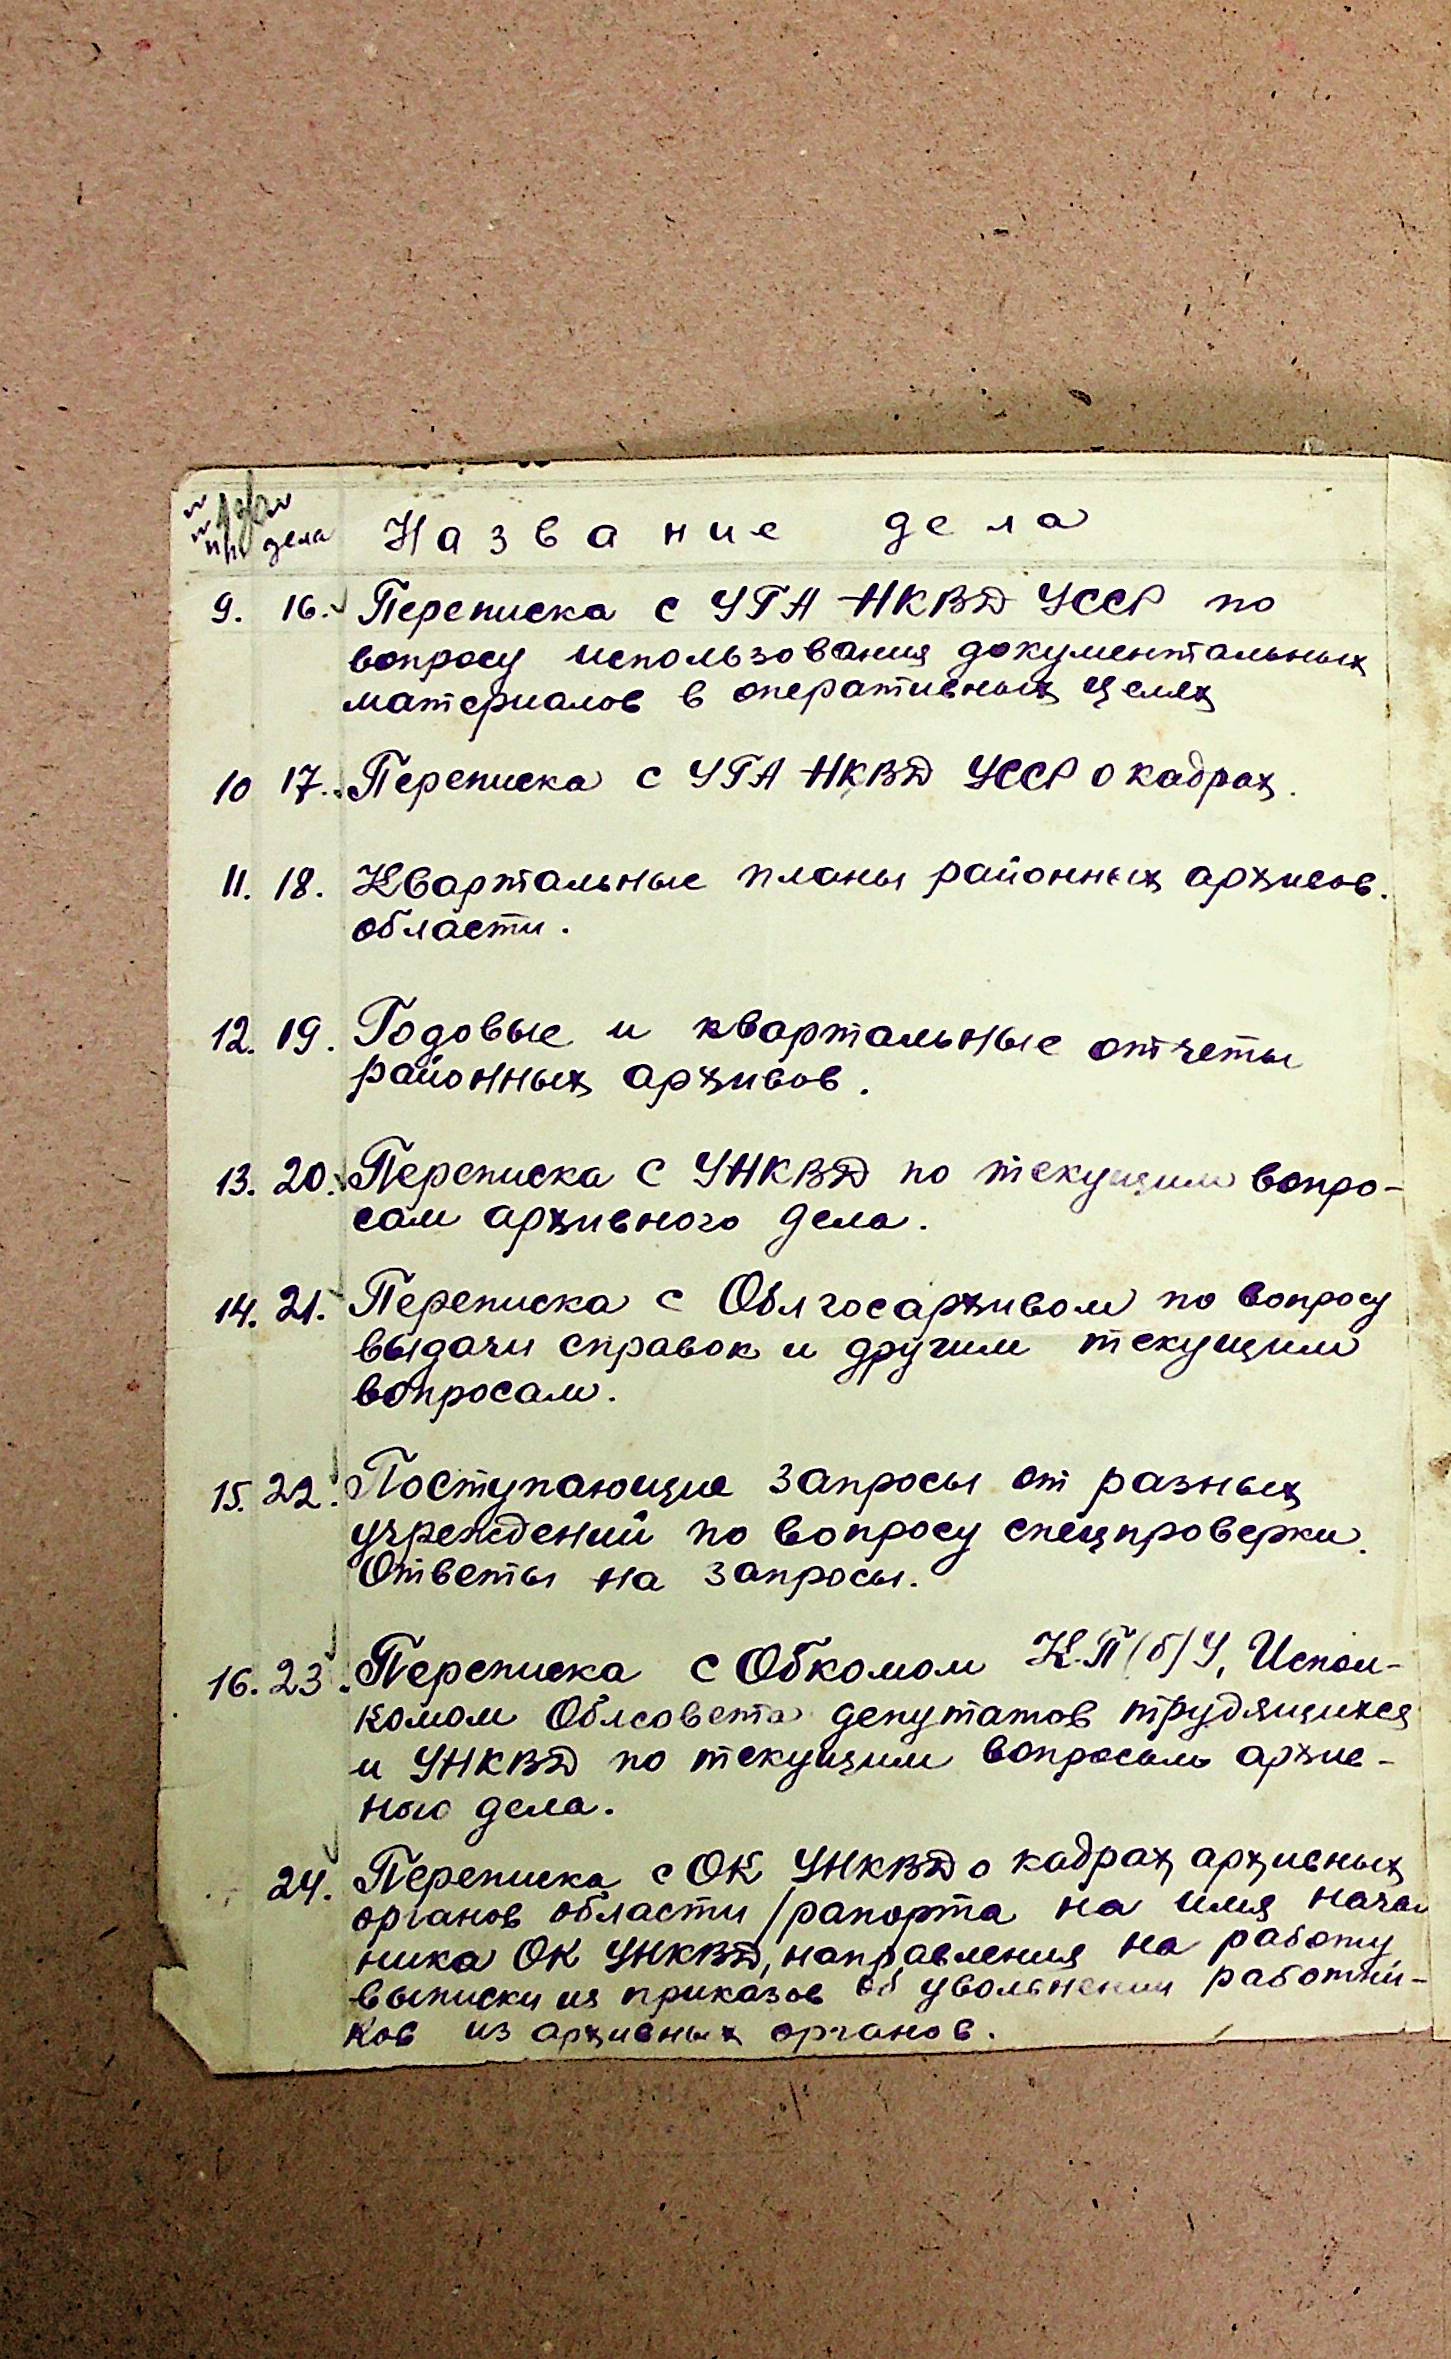 №№ пп дела Название дела
9. 16. Переписка с УГА НКВД УССР по
вопросу использования документальных
материалов в оперативных целях
10 17. Переписка с УГА НКВД УССР о кадрах.
11. 18. Квартальные планы районных архивов
области.
12. 19. Годовые и квартальные отчеты
районных архивов.
13. 20. Переписка с УНКВД по текущим вопро-
сам архивного дела.
14. 21. Переписка с Облгосархивом по вопросу
выдачи справок и другим текущим
вопросам.
15. 22. Поступающие запросы от разных
учреждений по вопросу спецпроверки.
Ответы на запросы.
16. 23. Переписка с Обкомом К.П/б/У, Испол-
комом Облсовета депутатов трудящихся
и УНКВД по текущим вопросам архив-
ного дела.
24. Переписка с ОК УНКВД о кадрах архивных
органов области /рапорта на имя начал
ника ОК УНКВД, направления на работу
выписки из приказов об увольнении работни-
ков из архивных органов.